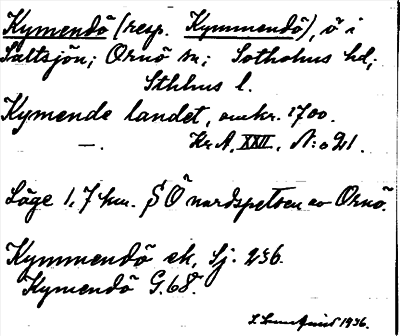 Kymendö (resp. Kymmendö), ö i
Saltsjön; Ornö sn; Sotholms hd;
Sthlms l.
Kymende landet, omkr. 1700.
—. Kr.A. XXII. N:o 21.
Läge 1,7 km. SÖ nordspetsen av Ornö.
Kymmendö ek, Sj. 256.
Kymendö G.68.
1936.